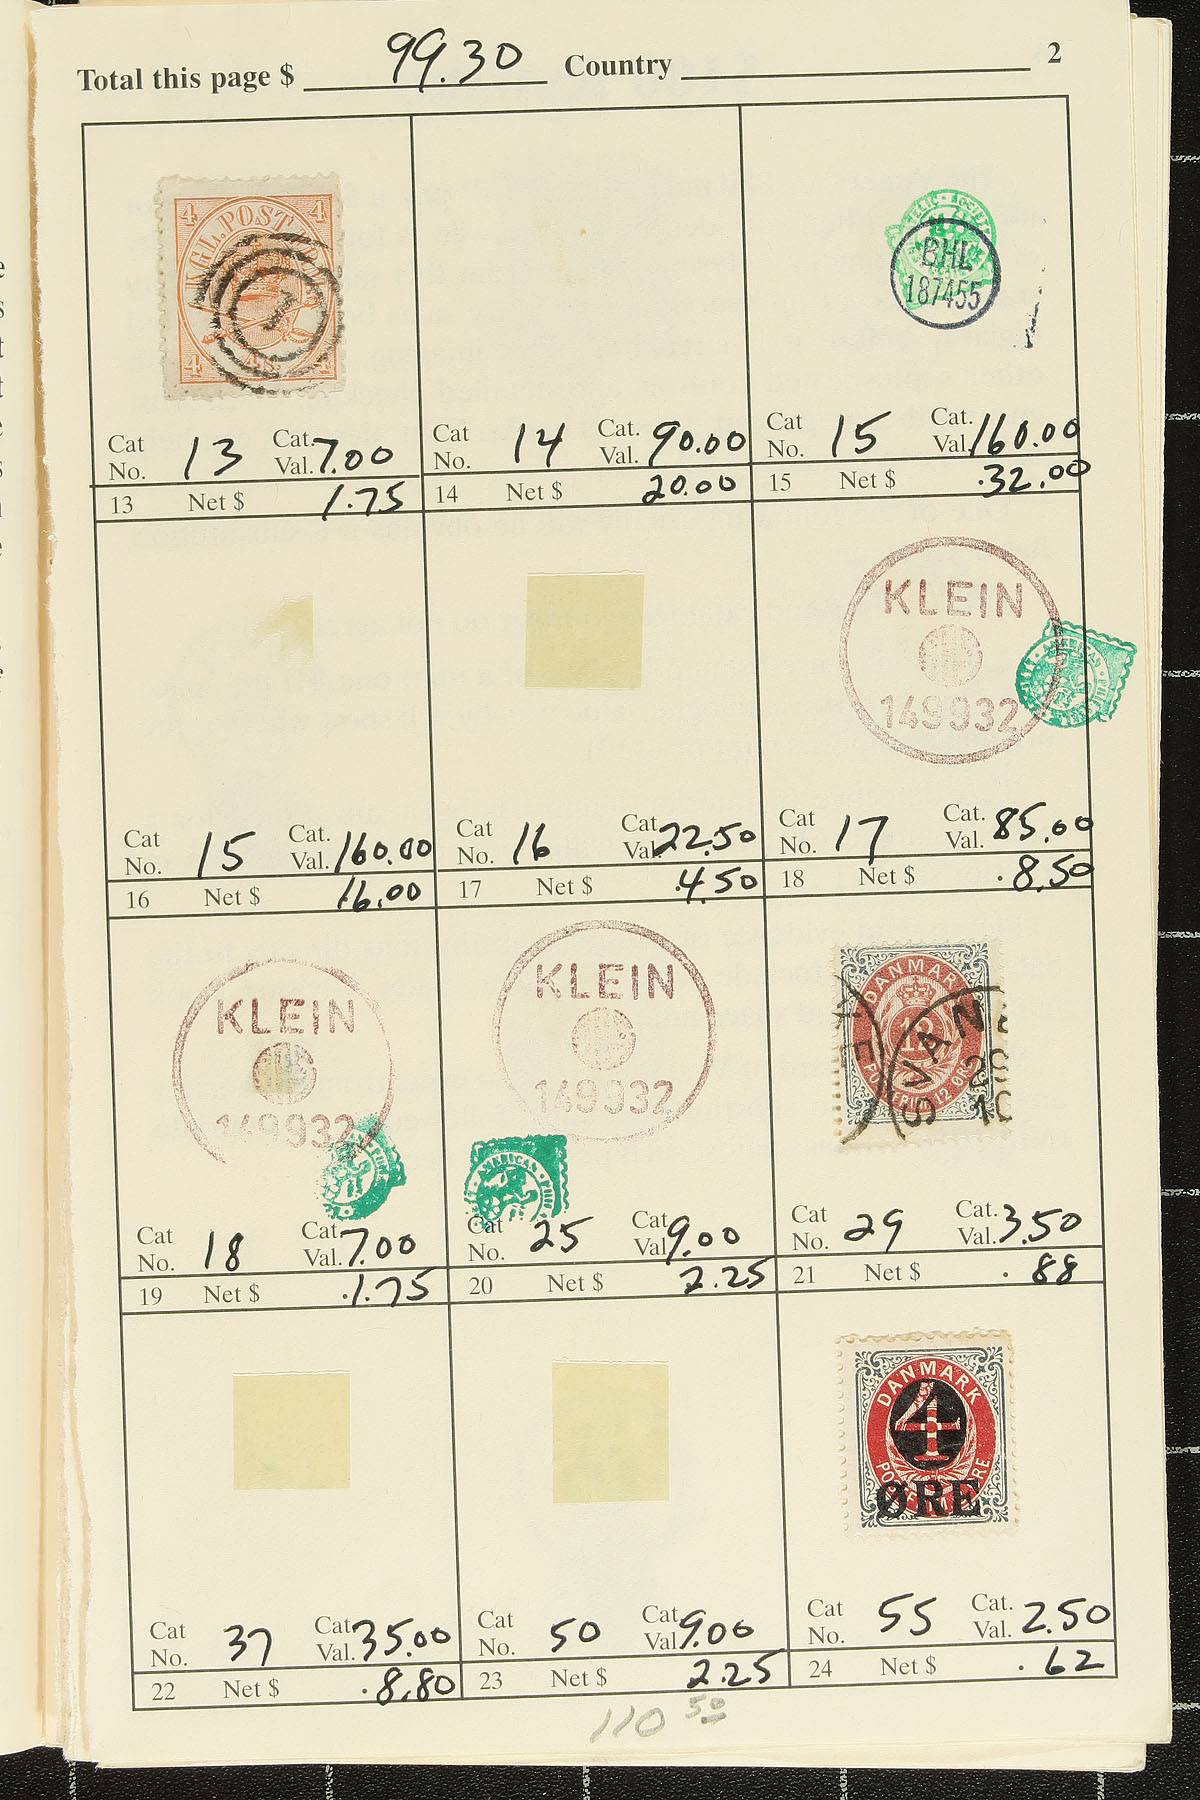 Total this page $ 99.30 Country 2
4 KGL. POST FRM 4
1
4 4 S. 4
BHL
187455
Cat No. 13 Cat. Val. 7.00
13 Net $ 1.75
Cat No. 14 Cat. Val. 90.00
14 Net $ 20.00
Cat No. 15 Cat. Val. 160.00
15 Net $ .32.00
KLEIN
149932
AMERICAN
Cat No. 15 Cat. Val. 160.00
16 Net $ 16.00
Cat No. 16 Cat. Val. 22.50
17 Net $ .4.50
Cat No. 17 Cat. Val. 85.00
18 Net $ .8.50
KLEIN
149932
KLEIN
149932
AMERICAN
DANMARK
12
POSTFRIM 12 ØRE
SVAN
Cat No. 18 Cat. Val. 7.00
19 Net $ .1.75
Cat No. 25 Cat. Val. 9.00
20 Net $ 2.25
Cat No. 29 Cat. Val. 3.50
21 Net $ .88
DANMARK
4
ØRE
Cat No. 37 Cat. Val. 35.00
22 Net $ .8.80
Cat No. 50 Cat. Val. 9.00
23 Net $ 2.25
Cat No. 55 Cat. Val. 2.50
24 Net $ .62
110 50